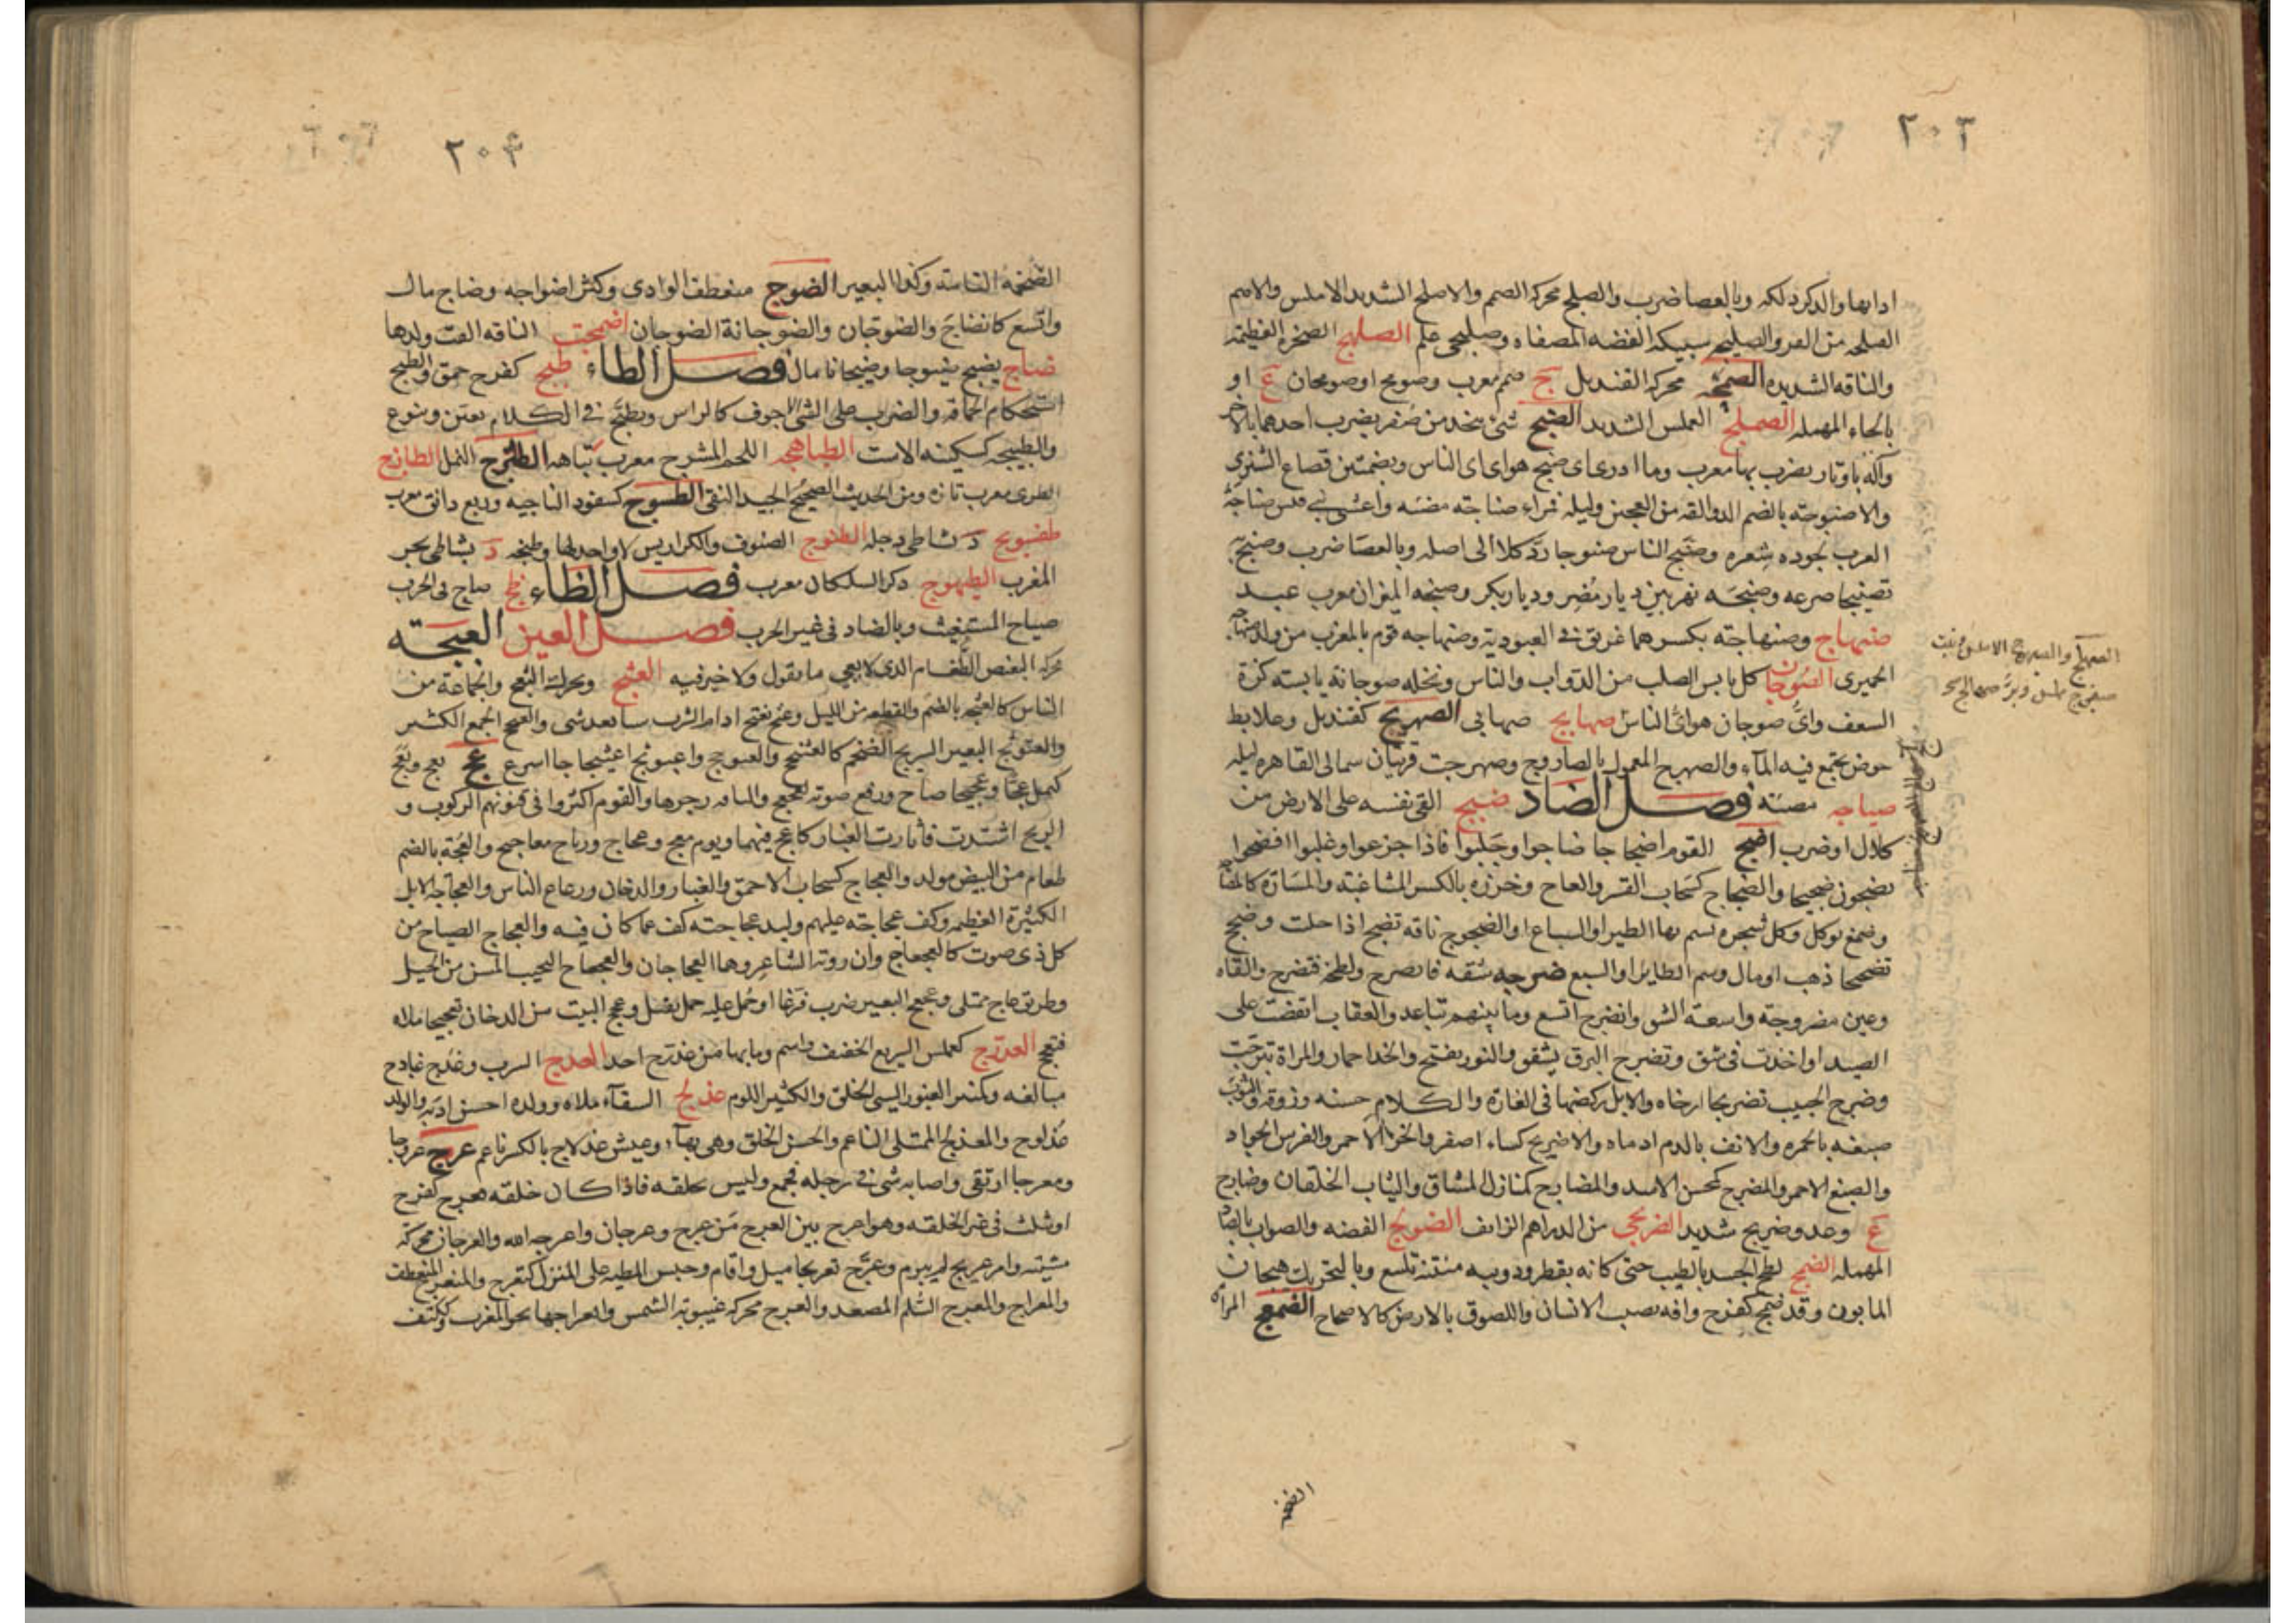 ٢٠٣
اذابها والذكر دلكه وبالعصا ضرب والصلج محركة الصمم والاصلج الشديد الاملس والاصم
الصلجه من القز والصليجه سبيكة الفضه المصفاه وصليجى علم الصلهج الصخرة العظيمة
والناقه الشديده الصمجة محركة القنديل ج صمج معرب وصومج او صومجان ع او
بالحاء المهمله الصملج العملس الشديد الصنج شئ يتخذ من صفر يضرب احدهما بالاخر
وآلة باوتار يضرب بها معرب وما ادرى اى صنج هو اى اى الناس وبضمتين قصاع الشيزى
والاصنوجة بالضم الدوالقة من العجين وليلة قمراء صناجة مضئه واعشى بنى قيس صناجة
العرب لجوده شعره وصنج الناس صنوجا رد كلا الى اصله وبالعصا ضرب وصنج به
تصنيجا صرعه وصنجه نهر بين ديار مضر وديار بكر وصنجه الميزان معرب عبد
صنهاج وصنهاجة بكسرهما عريق فى العبودية وصنهاجه قوم بالمغرب من ولد صنهاجه
الحميرى الصوجان كل يابس الصلب من الدواب والناس ونخله صوجانة يابسه كزة
السعف واىّ صوجان هو اىّ الناس صهابج صهابى الصهريج كقنديل وعلابط
حوض يجتمع فيه الماء والصهرج المعمول بالصاروج وصهرجت قريتان شمالى القاهره ليله
صياجه مضئة فصل الضاد ضبج القى نفسه على الارض من
كلال او ضرب اضج القوم اضجاجا ضاجوا وجلبوا فاذا جزعوا وغلبوا فضجوا
يضجون ضجيجا والضجاج كسحاب القسر والعاج وخرزه بالكسر المشاغبة والمشارة كالمضاجة
وصمغ يوكل وكل شجره تسم بها الطير او السباع او الضجوج ناقه تضج اذا حلبت وضجج
تضجيجا ذهب او مال وسم الطاير او السبع ضرجه شقه فانضرج ولطخه فتضرج والقاه
وعين مضروجة واسعة الشق وانضرج اتسع وما بينهم تباعد والعقاب انقضت على
الصيد او اخذت فى شق وتضرج البرق تشقق والنور تفتح والخد احمار والمراة تبرجت
وضرج الجيب تضريجا ارخاه والابل ركضها فى الغارة والكلام حسنه وزوقه والثوب
صبغه بالحمره والانف بالدم ادماه والاضريج كساء اصفر والخز الاحمر والفرس الجواد
والصبغ الاحمر والمضرج كمحسن الاسد والمضارج كمنازل المشاق والثياب الخلقان وضارج
ع وعدو ضريج شديد الضربجى من الدراهم الزائف الضولج الفضه والصواب بالصاد
المهمله الضمج لطخ الجسد بالطيب حتى كانه يقطر ودويبه منتنة تلسع وبالتحريك هيجان
المابون وقد ضمج كفرح وافه تصيب الانسان واللصوق بالارض كالاضماج الضمعج المراة
الضخمه
٢٠٤
الضخمة التامة وكذا البعير الضوج منعطف الوادى وكثر اضواجه وضاج مال
واتسع كانضاج والضوجان والضوجانة الصوجان اضهجت الناقه القت ولدها
ضاج يضيج ضيوجا وضيجانا مال فصل الطاء طبج كفرح حمق والطبج
استحكام الحماقه والضرب على الشئ الاجوف كالراس وتطبج فى الكلام تفنن وتنوع
والطبيجه كسكينه الاست الطباهجه اللحم المشرح معرب تباهه الطثرج النمل الطازج
الطرى معرب تازه ومن الحديث الصحيح الجيد النقى الطسوج كسفود الناحيه وربع دانق معرب
طفسونج د بشاطى دجله الطنوج الصنوف والكراريس لا واحد لها وطنجه د بشاطى بحر
المغرب الطيهوج ذكر السلكان معرب فصل الظاء ظج صاح فى الحرب
صياح المستغيث وبالضاد فى غير الحرب فصل العين العبجة
محركة البغيض الطغام الذى لا يعى ما يقول ولا خير فيه العثج ويحرك الثعج والجماعة من
الناس كالعثجه بالضم والقطعه من الليل وعثج يعثج ادام الشرب شيا بعد شئ والعثج الجمع الكثير
والعثوثج البعير السريع الضخم كالعثنثج والعثوجج واعثوثج اعثيجاجا اسرع عج يعج ويعج
كيمل عجا وعجيجا صاح ورفع صوته كعجعج والناقه زجرها والقوم اكثروا فى فنونهم الركوب و
الريح اشتدت فاثارت الغبار كاعج فيهما ويوم معج وعجاج ورياح معاجيج والعجة بالضم
طعام من البيض مولد والعجاج كسحاب الاحمق والغبار والدخان ورعاع الناس والعجاجه الابل
الكثيرة العظيمه ولف عجاجته عليهم ولبد عجاجته كف عما كان فيه والعجاج الصياح من
كل ذى صوت كالعجعاج وابن روبة الشاعر وهما العجاجان والعجعاج النجيب المسن من الخيل
وطريق عاج ممتلى وعجعج البعير ضرب فرغا او حمل عليه حمل ثقيل وعجج البيت من الدخان تعجيجا ملاه
فتعجج العدرج كعملس السريع الخفيف واسم وما بها من عدرج احد العذج الشرب وعذج عاذج
مبالغه وكمنبر الغيور السيئ الخلق والكثير اللوم عذلج السقاء ملاه وولده احسن غذاءه والولد
عذلوج والمعذلج الممتلى الناعم والحسن الخلق وهى بهاء وعيش عذلاج بالكسر ناعم عرج عروجا
ومعرجا ارتقى واصابه شئ فى رجله فجمع وليس بخلقه فاذا كان خلقه فعرج كفرح
او يثلث فى غير الخلقه وهو اعرج بين العرج من عرج وعرجان واعرجه الله والعرجان محركة
مشيته وامر عريج لم يبرم وعرّج تعريجا ميل واقام وحبس المطية على المنزل كتعرج والمنعرج المنعطف
والمعراج والمعرج السلم المصعد والعرج محركة غيبوبة الشمس وانعراجها نحو المغرب وككتف